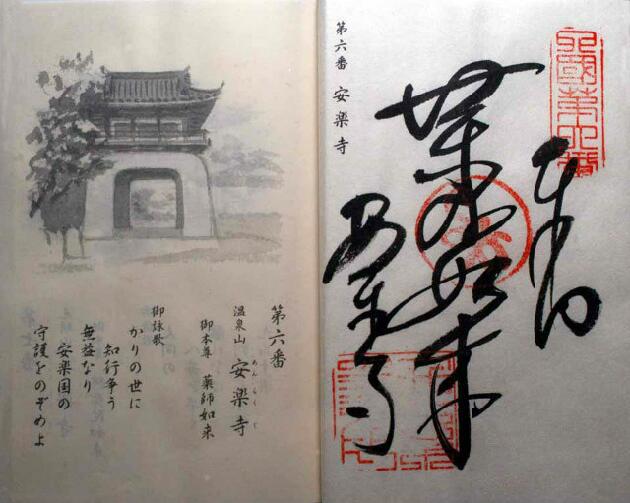 第六番 安楽寺
四國第六番
奉納
薬師如来
安楽寺
第六番
温泉山 安楽寺
あんらくじ
御本尊 薬師如来
御詠歌
かりの世に
知行争う
無益なり
安楽国の
守護をのぞめよ